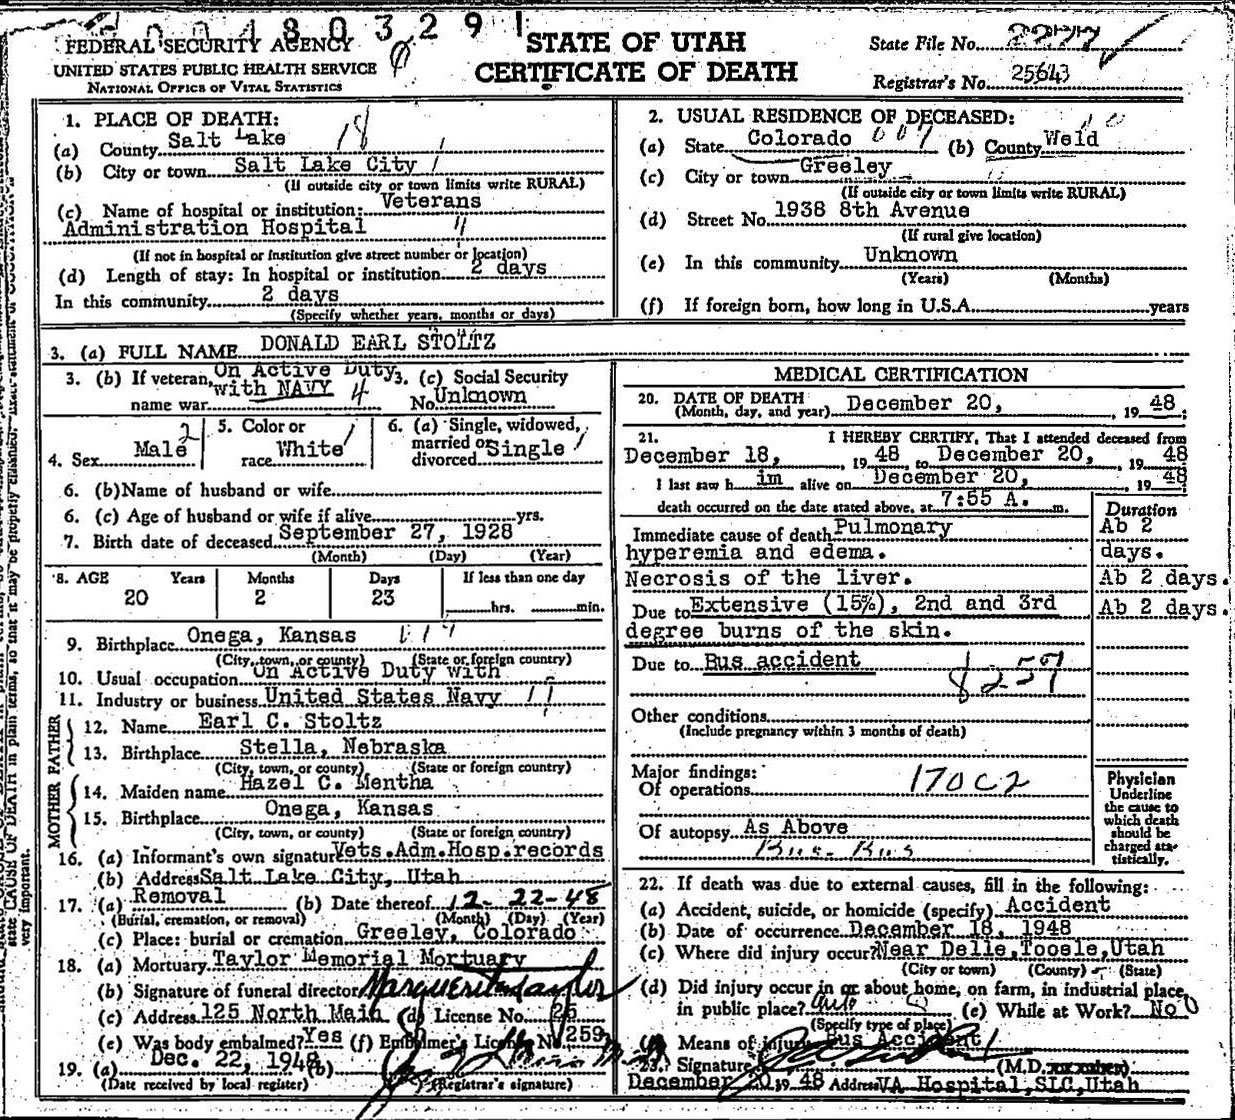 004803291
FEDERAL SECURITY AGENCY
UNITED STATES PUBLIC HEALTH SERVICE
NATIONAL OFFICE OF VITAL STATISTICS
STATE OF UTAH
CERTIFICATE OF DEATH
State File No.
Registrar's No. 25643
1. PLACE OF DEATH:
(a) County Salt Lake 18
(b) City or town Salt Lake City 1
(If outside city or town limits write RURAL)
(c) Name of hospital or institution: Veterans
Administration Hospital 4
(If not in hospital or institution give street number or location)
(d) Length of stay: In hospital or institution 2 days
In this community 2 days
(Specify whether years, months or days)
2. USUAL RESIDENCE OF DECEASED:
(a) State Colorado 007 (b) County Weld
(c) City or town Greeley
(If outside city or town limits write RURAL)
(d) Street No. 1938 8th Avenue
(If rural give location)
(e) In this community Unknown
(Years) (Months)
(f) If foreign born, how long in U.S.A. years
3. (a) FULL NAME DONALD EARL STOLTZ
3. (b) If veteran, On Active Duty
name war with NAVY 4
3. (c) Social Security
No. Unknown
4. Sex Male 2
5. Color or
race White 1
6. (a) Single, widowed,
married or
divorced Single 1
6. (b) Name of husband or wife
6. (c) Age of husband or wife if alive yrs.
7. Birth date of deceased September 27, 1928
(Month) (Day) (Year)
8. AGE Years Months Days If less than one day
20 2 23 hrs. min.
9. Birthplace Onega, Kansas
(City, town, or county) (State or foreign country)
10. Usual occupation On Active Duty with
11. Industry or business United States Navy
FATHER
12. Name Earl C. Stoltz
13. Birthplace Stella, Nebraska
(City, town, or county) (State or foreign country)
MOTHER
14. Maiden name Hazel C. Mentha
15. Birthplace Onega, Kansas
(City, town, or county) (State or foreign country)
16. (a) Informant's own signature Vets.Adm.Hosp.records
(b) Address Salt Lake City, Utah
17. (a) Removal (b) Date thereof 12-22-48
(Burial, cremation, or removal) (Month) (Day) (Year)
(c) Place: burial or cremation Greeley, Colorado
18. (a) Mortuary Taylor Memorial Mortuary
(b) Signature of funeral director Marguerite Taylor
(c) Address 125 North Main (d) License No. 26
(e) Was body embalmed? Yes (f) Embalmer's License No. 259
19. (a) Dec. 22, 1948 (b)
(Date received by local register) (Registrar's signature)
MEDICAL CERTIFICATION
20. DATE OF DEATH
(Month, day, and year) December 20, , 19 48;
21. I HEREBY CERTIFY, That I attended deceased from
December 18, , 19 48, to December 20, , 19 48
I last saw h im alive on December 20, , 19 48
death occurred on the date stated above, at 7:55 A. m.
Duration
Immediate cause of death Pulmonary Ab 2
hyperemia and edema. days.
Necrosis of the liver. Ab 2 days.
Due to Extensive (15%), 2nd and 3rd Ab 2 days.
degree burns of the skin.
Due to Bus accident
Other conditions
(Include pregnancy within 3 months of death)
Major findings:
Of operations 170C2
Of autopsy As Above
Bus - Bus
Physician
Underline
the cause to
which death
should be
charged sta-
tistically.
22. If death was due to external causes, fill in the following:
(a) Accident, suicide, or homicide (specify) Accident
(b) Date of occurrence December 18, 1948
(c) Where did injury occur? Near Delle, Tooele, Utah
(City or town) (County) (State)
(d) Did injury occur in or about home, on farm, in industrial place,
in public place? Auto (e) While at Work? No
(Specify type of place)
(f) Means of injury Bus Accident
23. Signature (M.D. xx xxxxx)
December 20 19 48 Address VA Hospital, SLC, Utah